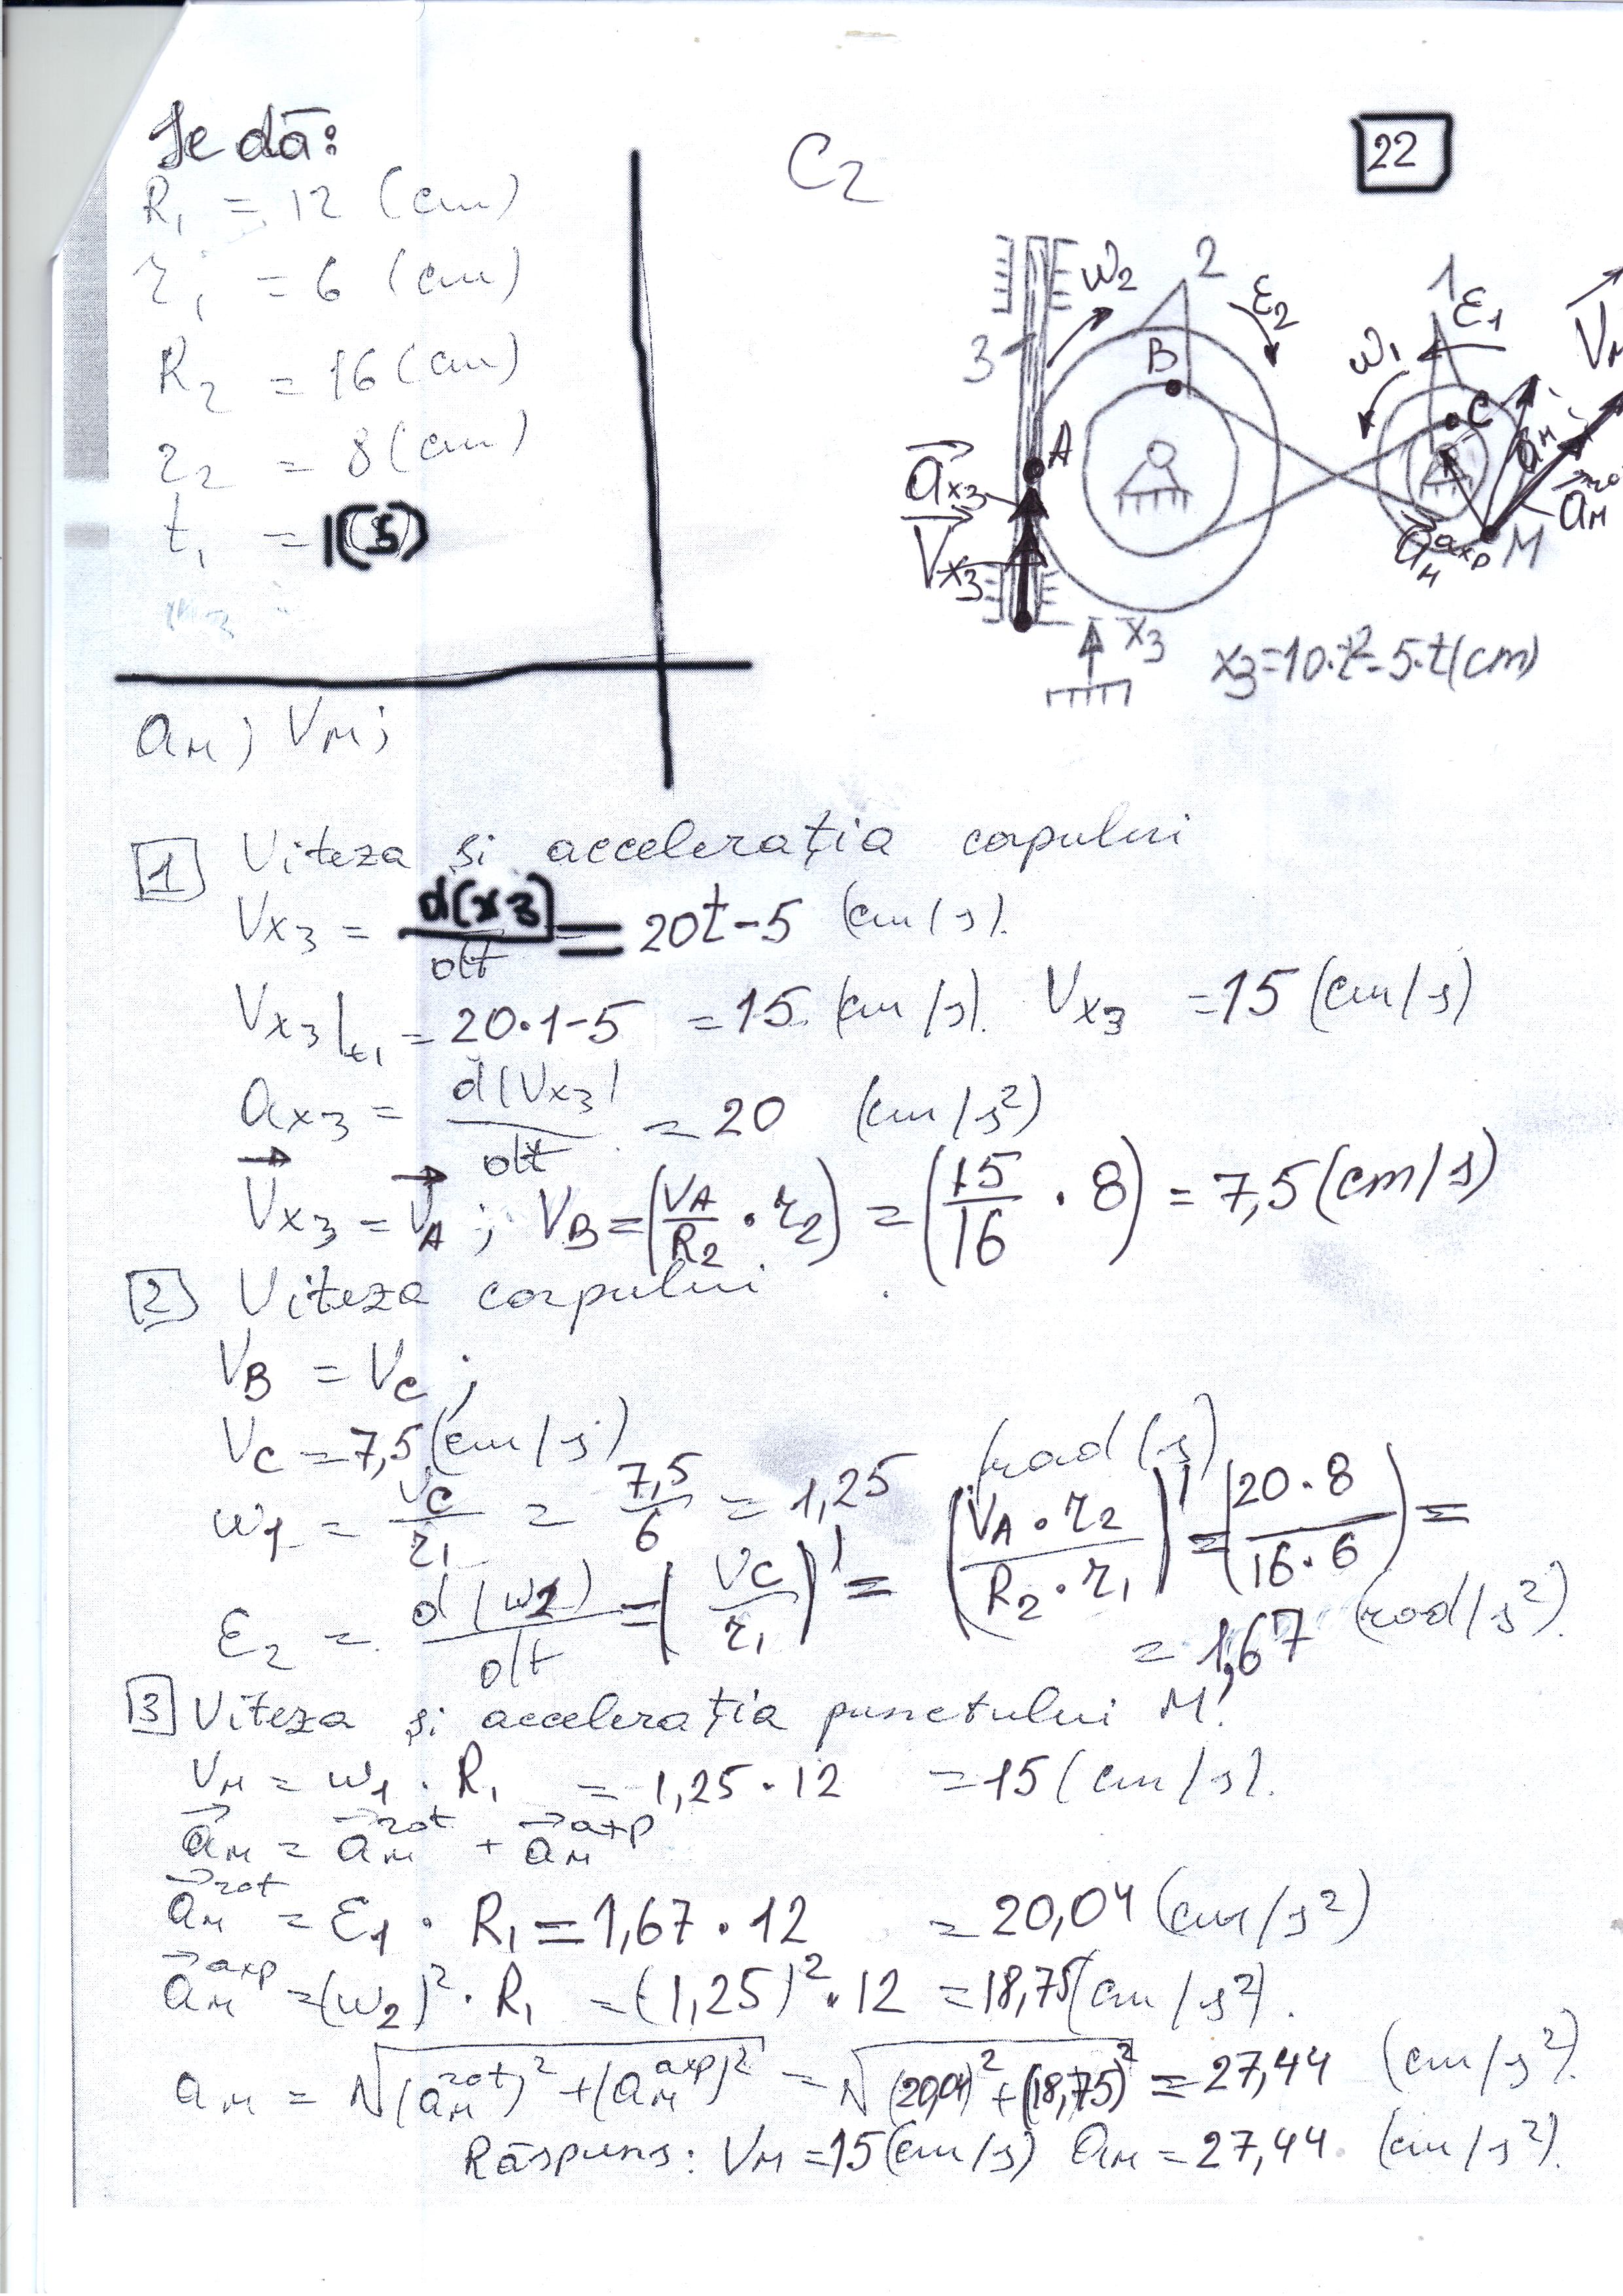 Se dă:
C2
22
R₁ = 12 (cm)
r₁ = 6 (cm)
R₂ = 16 (cm)
r₂ = 8 (cm)
t₁ = 1(s)
aM; VM;
ω₂ 2 ε₂ 1 ε₁
3 B ω₁ C VM
A aM
ax₃ Vx₃ aM^axp M aM
x₃ x₃=10·t²-5·t(cm)
1 Viteza și accelerația corpului
Vx₃ = d(x₃)/dt = 20t-5 (cm/s).
Vx₃|t₁ = 20·1-5 = 15 (cm/s). Vx₃ = 15 (cm/s)
ax₃ = d(Vx₃)/dt = 20 (cm/s²)
Vx₃ = VA; VB = (VA/R₂ · r₂) = (15/16 · 8) = 7,5 (cm/s)
2 Viteza corpului
VB = VC;
VC = 7,5 (cm/s)
ω₁ = VC/r₁ = 7,5/6 = 1,25 (rad/s)
ε₂ = d(ω₂)/dt = (VC/r₁)' = (VA·r₂/R₂·r₁)' = (20·8/16·6) =
= 1,67 (rad/s²).
3 Viteza și accelerația punctului M!
VM = ω₁ · R₁ = 1,25·12 = 15 (cm/s).
aM = aM^rot + aM^axp
aM^rot = ε₁ · R₁ = 1,67·12 = 20,04 (cm/s²)
aM^axp = (ω₂)² · R₁ = (1,25)²·12 = 18,75 (cm/s²).
aM = √(aM^rot)² + (aM^axp)² = √(20,04)² + (18,75)² = 27,44 (cm/s²).
Răspuns: VM = 15 (cm/s) aM = 27,44 (cm/s²).